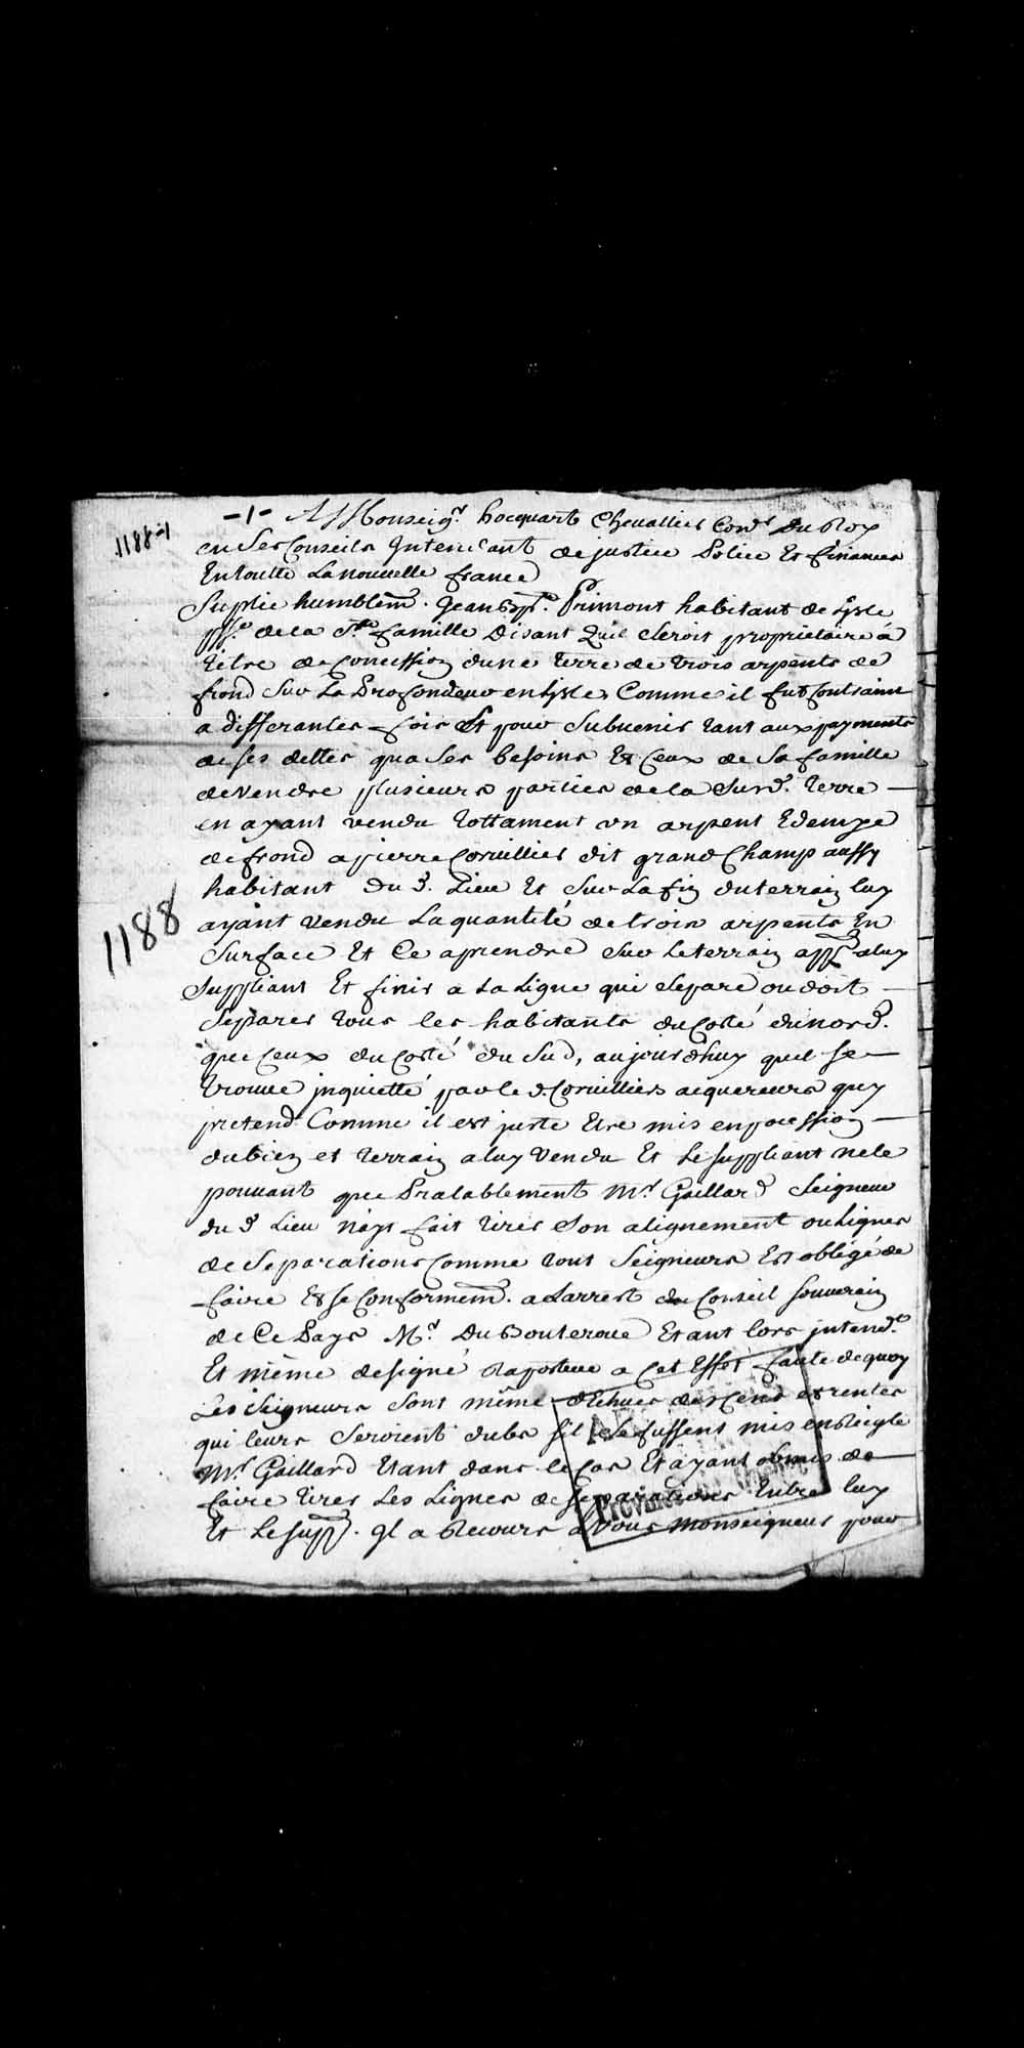 -1- A Monseig.r hocquart Chevallier Con.er Du Roy
1188-1
en Ses Conseils Intendant de justice Police Et finances
En toutte La nouvelle france
Suplie humblem.t Jean Bap.te Primont habitant de Lisle
p.sse de la S.te famille Disant Quil Seroit proprietaire a
titre de Concession dune terre de trois arpents de
frond Sur La Profondeur en lisle, Comme il fut Contraint
a differantes fois Et pour Subvenir tant aux payments
de ses dettes qua Ses besoins Et Ceux de Sa famille
de Vendre plusieurs parties de la Surd. terre
en ayant vendu Nottament un arpent Edemye
de frond a pierre Cornillier dit grand Champ aussy
habitant Du d. Lieu Et Sur La fin du terrain luy
1188
ayant Vendu La quantité de trois arpents En
Surface Et Ce aprendre Sur le terrain app.t aluy
Suppliant Et finir a La Ligne qui Separe ou doit
Separer tous les habitants du Costé du nord.
que Ceux du Costé du Sud, aujourdhuy quil Se
trouve inquietté par le d. Cornilliers acquereurs quy
pretend Comme il est juste Etre mis en pocession
du bien et terrain a luy Vendu Et Le Suppliant ne le
pouvant que Pralablement M.r Gaillard Seigneur
du d Lieu nayt fait tirer Son alignement ou Lignes
de Separations Comme tout Seigneurs Est obligé de
faire Et Se Conformem.t a Larrest du Conseil Souverain
de Ce Pays M.r Du Bouteroue Etant lors intend.t
Et même designé Raporteur a Cet Effet faute de quoy
Les Seigneurs Sont même dEchues des Cens et rentes
qui leurs Seroient dubs Sil Se fussent mis en Reigle
M.r Gaillard Etant dans le Cas Et ayant obmis de
faire tirer Les Lignes de Separations Entre luy
Et Le Supp.t Il a Recours a Vous Monseigneur pour